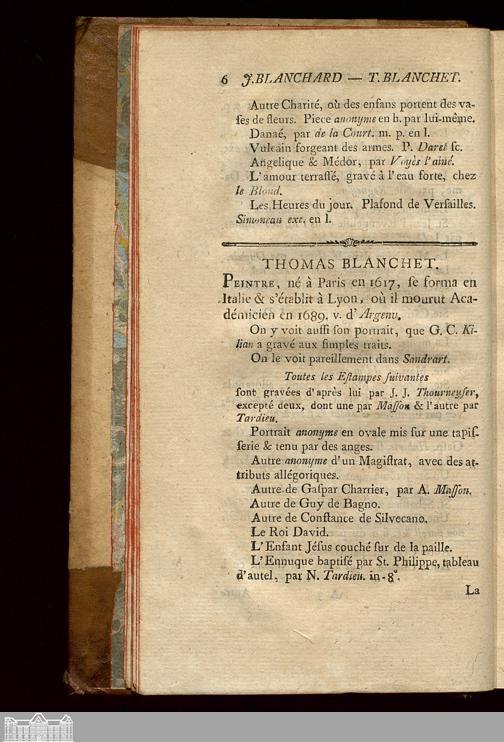 6 J.BLANCHARD — T.BLANCHET.
Autre Charité, où des enfans portent des va-
ſes de fleurs. Piece anonyme en h. par lui-même.
Danaé, par de la Court. m. p. en l.
Vulcain forgeant des armes. P. Daret ſc.
Angelique & Médor, par Voyès l'ainé.
L'amour terraſſé, gravé à l'eau forte, chez
le Blond.
Les Heures du jour. Plafond de Verſailles.
Simoneau exc. en l.
THOMAS BLANCHET.
PEINTRE, né à Paris en 1617, ſe forma en
Italie & s'établit à Lyon, où il mourut Aca-
démicien en 1689. v. d'Argenv.
On y voit auſſi ſon portrait, que G. C. Ki-
lian a gravé aux ſimples traits.
On le voit pareillement dans Sandrart.
Toutes les Eſtampes ſuivantes
ſont gravées d'après lui par J. J. Thourneyſer,
excepté deux, dont une par Maſſon & l'autre par
Tardieu.
Portrait anonyme en ovale mis ſur une tapiſ-
ſerie & tenu par des anges.
Autre anonyme d'un Magiſtrat, avec des at-
tributs allégoriques.
Autre de Gaſpar Charrier, par A. Maſſon.
Autre de Guy de Bagno.
Autre de Conſtance de Silvecano.
Le Roi David.
L'Enfant Jéſus couché ſur de la paille.
L'Ennuque baptiſé par St. Philippe, tableau
d'autel, par N. Tardieu. in-8°.
La